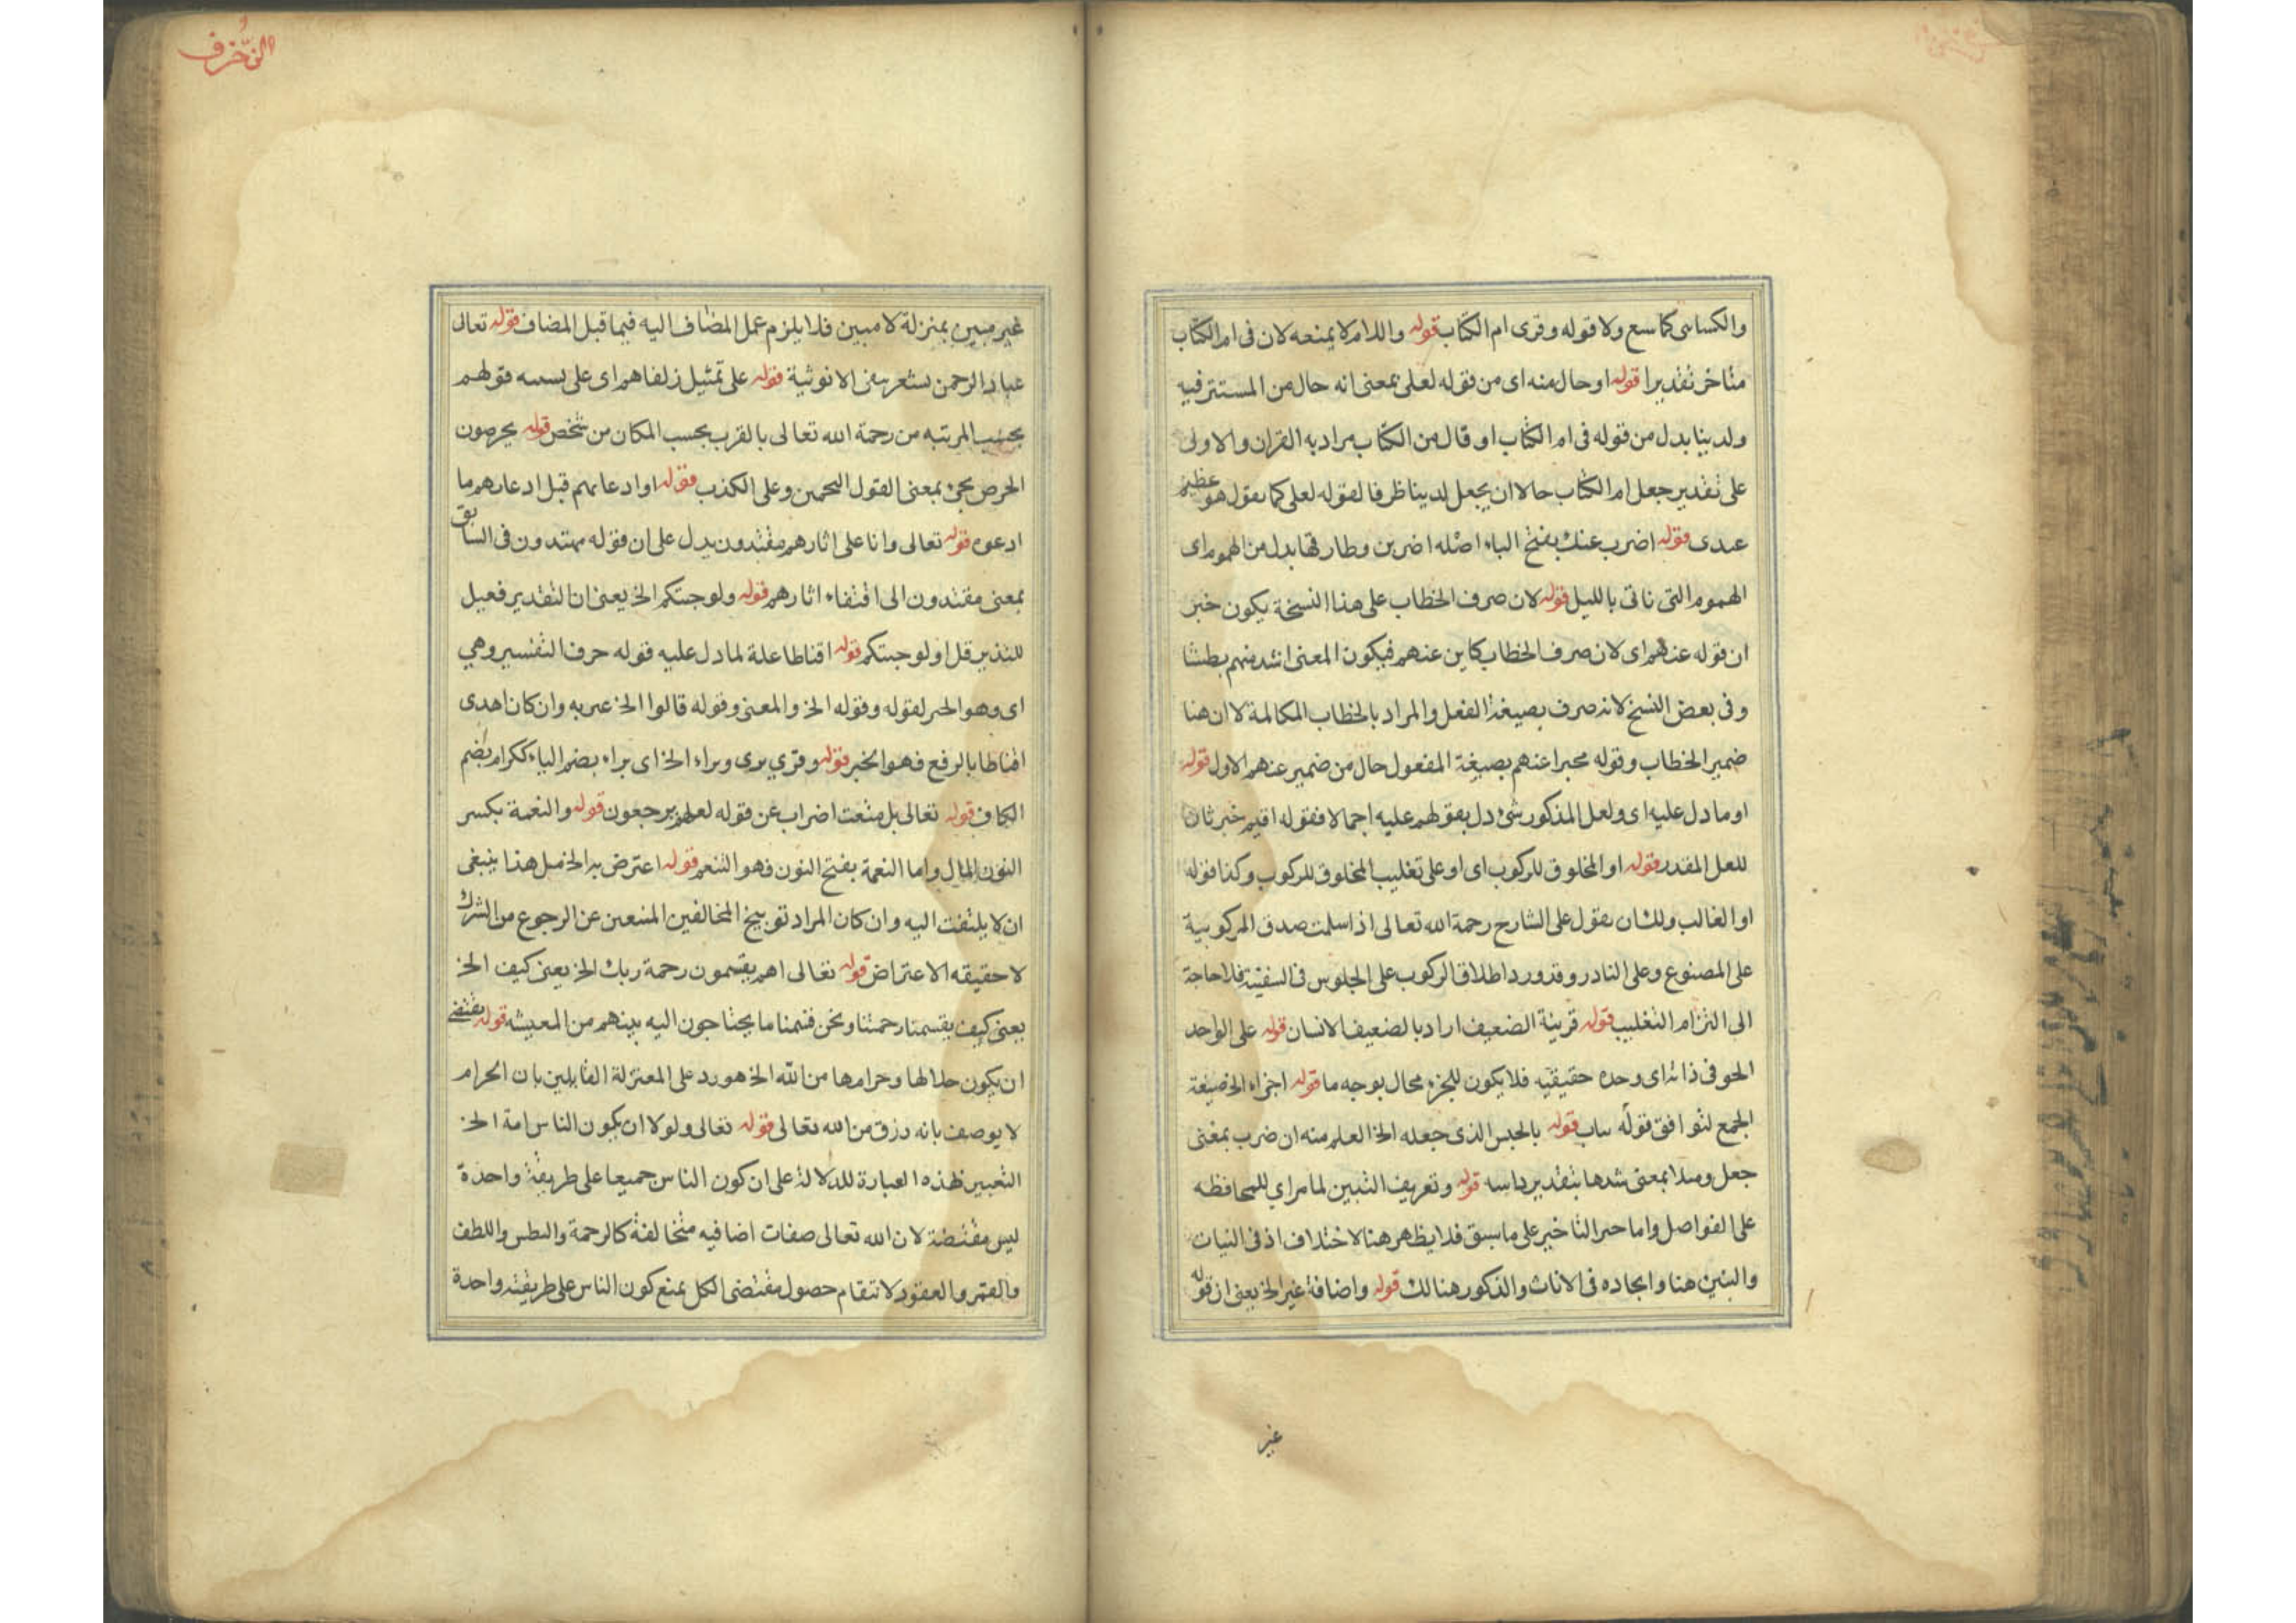 والكسائى كما سع ولا قوله وقرى ام الكتاب قوله واللام لا يمنعه لان فى ام الكتاب
متاخر تقديرا قوله او حال منه اى من قوله لعلى بمعنى انه حال من المستتر فيه
ولدينا بدل من قوله فى ام الكتاب او قال من الكتاب مراد به القران والاولى
على تقدير جعل ام الكتاب حالا ان يجعل لدينا ظرفا لقوله لعلى كما نقول هو عظيم
عندى قوله اضرب عنك بفتح الباء اصله اضربن وطارقها بدل من الهموم اى
الهموم التى تاتى بالليل قوله لان صرف الخطاب على هذا النسخة يكون خبر
ان قوله عنهم اى لان صرف الخطاب كاين عنهم فيكون المعنى اشد منهم بطشا
وفى بعض النسخ لانه صرف بصيغة الفعل والمراد بالخطاب المكالمة لا ان هنا
ضمير الخطاب وقوله مخبرا عنهم بصيغة المفعول حال من ضمير عنهم الاول قوله
او ما دل عليه اى ولعل المذكور شئ دل بقولهم عليه اجمالا فقوله اقيم خبر ثان
للعل المقدر قوله او المخلوق للركوب اى او على تغليب المخلوق للركوب وكذا قوله
او الغالب ولك ان نقول على الشارح رحمة الله تعالى اذا سلمت صدق المركوبية
على المصنوع وعلى النادر وقد ورد اطلاق الركوب على الجلوس فى السفينة فلا حاجة
الى التزام التغليب قوله قرينة الضعيف اراد بالضعيف الانسان قوله على الواحد
الحو فى ذاته اى وحده حقيقيه فلا يكون للجزء محال بوجه ما قوله اجزاء الخ صيغة
الجمع لتوافق قوله قوله بالجنس الذى جعله الخ العلم منه ان ضرب بمعنى
جعل ومثلا بمعنى شبها بتقدير قوله وتعريف البنين لما مر اي للمحافظه
على الفواصل واما التاخير على ما سبق فلا يظهر هنا لاختلاف اذ فى البنات
والبنين هنا واتحاده فى الاناث والذكور هنالك قوله واضافة غير الخ يعنى ان قوله
غير
الزخرف
غير مبين بمنزلة لا مبين فلا يلزم عمل المضاف اليه فيما قبل المضاف قوله تعالى
عباد الرحمن يشعر بنفى الانوثية قوله على تمثيل زلفاهم اى على قولهم
بحسب المرتبه من رحمة الله تعالى بالقرب بحسب المكان من شخص قوله يخرصون
الخرص يجئ بمعنى القول التخمين وعلى الكذب قوله او ادعائهم قبل ادعائهم ما
ادعوه قوله تعالى وانا على اثارهم مقتدون يدل على ان قوله مهتدون فى السابق
بمعنى مقتدون الى اقتفاء اثارهم قوله ولو جئتكم الخ يعنى ان التقدير فعيل
للنذير قل اولو جئتكم قوله اقناطا علة لما دل عليه قوله حرف التفسير وهي
اى وهو الخبر لقوله وقوله الخ والمعنى وقوله قالوا الخ وان كان احدى
اقناطا بالرفع فهو الخبر قوله وقري برى وبراء الخ اى براء بضم الباء ككرام بضم
الكاف قوله تعالى بل متعت اضراب عن قوله لعلهم يرجعون قوله والنعمة بكسر
النون المال واما النعمة بفتح النون فهو التنعم قوله اعترض به الخ مثل هذا ينبغى
ان لا يلتفت اليه وان كان المراد توبيخ المخالفين عن الرجوع من الشرك
لا حقيقه الاعتراض قوله تعالى اهم يقسمون رحمة ربك الخ يعنى كيف الخ
يعنى كيف يقسمنا رحمتنا ونحن قسمنا ما يحتاجون اليه بينهم من المعيشه قوله يقتضى
ان يكون حلالها وحرامها من الله الخ هو رد على المعتزلة القايلين بان الحرام
لا يوصف بانه رزق من الله تعالى قوله تعالى ولولا ان يكون الناس امة الخ
التعبير لهذه العبارة للدلالة على ان كون الناس جميعا على طريقة واحدة
ليس مقتضة لان الله تعالى صفات اضافيه متخالفة كالرحمة والبطش واللطف
والقهر والعفو ولا تنقام حصول مقتضى الكل يمنع كون الناس على طريقته واحدة